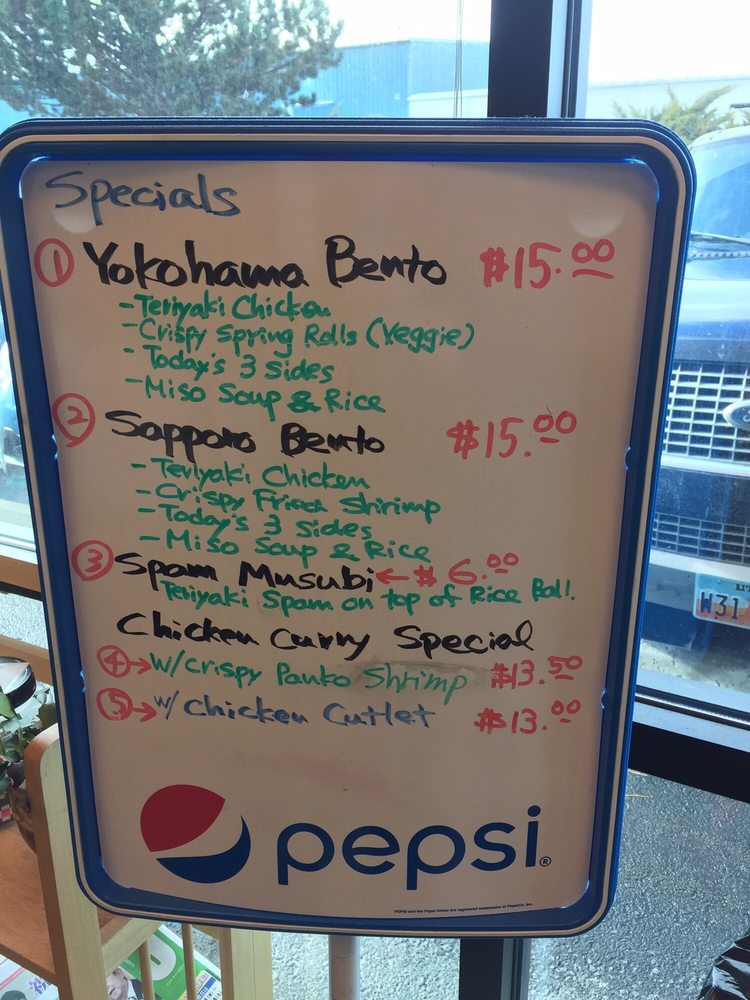 Specials
① Yokohama Bento $15.00
- Teriyaki Chicken
- Crispy Spring Rolls (Veggie)
- Today's 3 sides
- Miso Soup & Rice
② Sapporo Bento $15.00
- Teriyaki Chicken
- Crispy Fried Shrimp
- Today's 3 sides
- Miso Soup & Rice
③ Spam Musubi ← $6.00
Teriyaki Spam on top of Rice Ball.
Chicken Curry Special
④→ w/Crispy Panko Shrimp $13.50
⑤→ w/ Chicken Cutlet $13.00
pepsi®
PEPSI and the Pepsi Globe are registered trademarks of PepsiCo, Inc.
W31